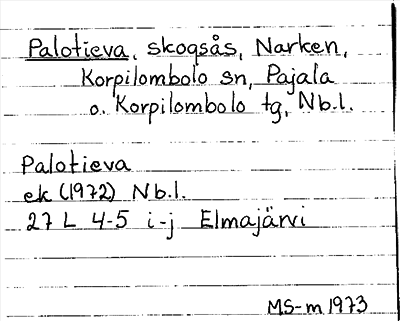 Palotieva, skogsås, Narken,
Korpilombolo sn, Pajala
o. Korpilombolo tg, Nb.l.
Palotieva
ek (1972) Nb.l.
27 L 4-5 i-j Elmajärvi
MS-m 1973